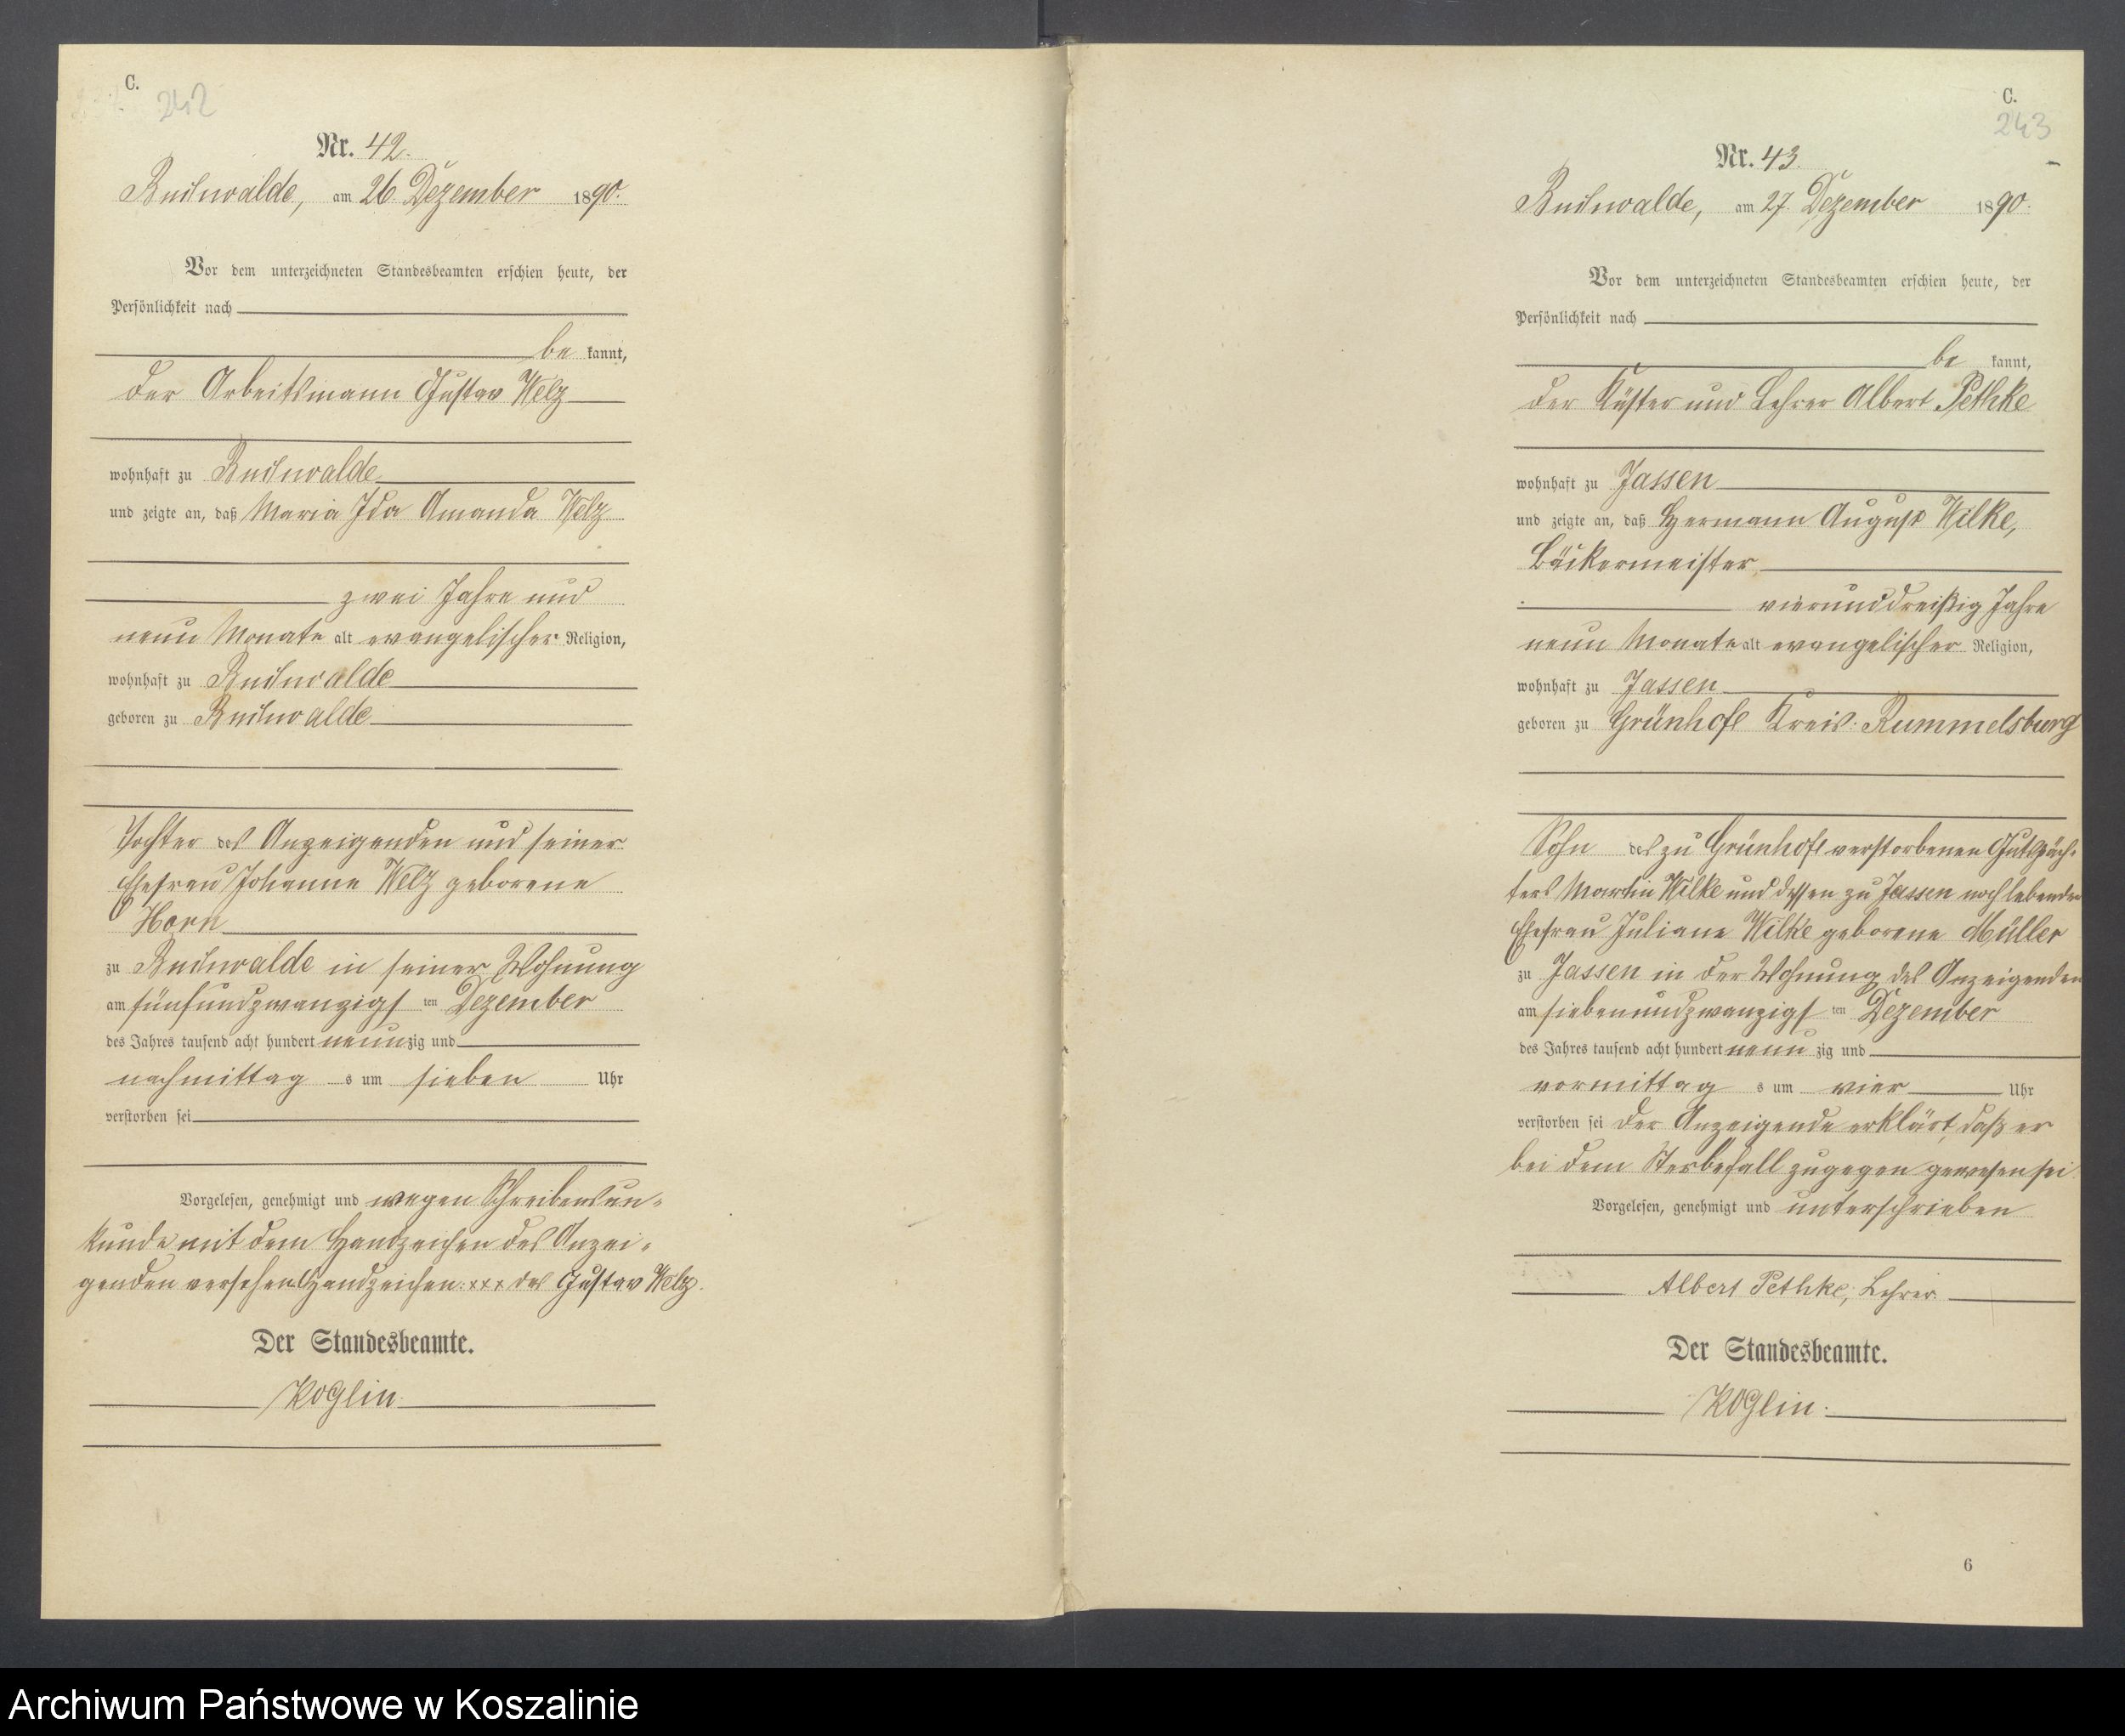 C.
242
Nr. 42.
Buchwalde, am 26. Dezember 1890.
Vor dem unterzeichneten Standesbeamten erschien heute, der
Persönlichkeit nach
be kannt,
der Arbeitsmann Gustav Welz
wohnhaft zu Buchwalde
und zeigte an, daß Maria Ida Amanda Welz
zwei Jahre und
neun Monate alt evangelischer Religion,
wohnhaft zu Buchwalde
geboren zu Buchwalde
Tochter des Anzeigenden und seiner
Ehefrau Johanne Welz geborene
Horn
zu Buchwalde in seiner Wohnung
am fünfundzwanzigs ten Dezember
des Jahres tausend acht hundert neunzig und
nachmittag s um sieben Uhr
verstorben sei
Vorgelesen, genehmigt und wegen Schreibensun-
kunde mit dem Handzeichen des Anzei-
genden versehen Handzeichen: xxx des Gustav Welz.
Der Standesbeamte.
Koglin.
C.
243
Nr. 43.
Buchwalde, am 27. Dezember 1890.
Vor dem unterzeichneten Standesbeamten erschien heute, der
Persönlichkeit nach
be kannt,
der Küster und Lehrer Albert Pethke
wohnhaft zu Jassen
und zeigte an, daß Hermann August Wilke,
Bäckermeister
vierunddreißig Jahre
neun Monate alt evangelischer Religion,
wohnhaft zu Jassen
geboren zu Grünhof Kreis: Rummelsburg
Sohn des zu Grünhof verstorbenen Gutspäch-
ters Martin Wilke und dessen zu Jassen noch lebenden
Ehefrau Juliane Wilke geborene Müller
zu Jassen in der Wohnung des Anzeigenden
am siebenundzwanzigs ten Dezember
des Jahres tausend acht hundert neun zig und
vormittag s um vier Uhr
verstorben sei der Anzeigende erklärt, daß er
bei dem Sterbefall zugegen gewesen sei.
Vorgelesen, genehmigt und unterschrieben
Albert Pethke, Lehrer.
Der Standesbeamte.
Koglin.
6
Archiwum Państwowe w Koszalinie